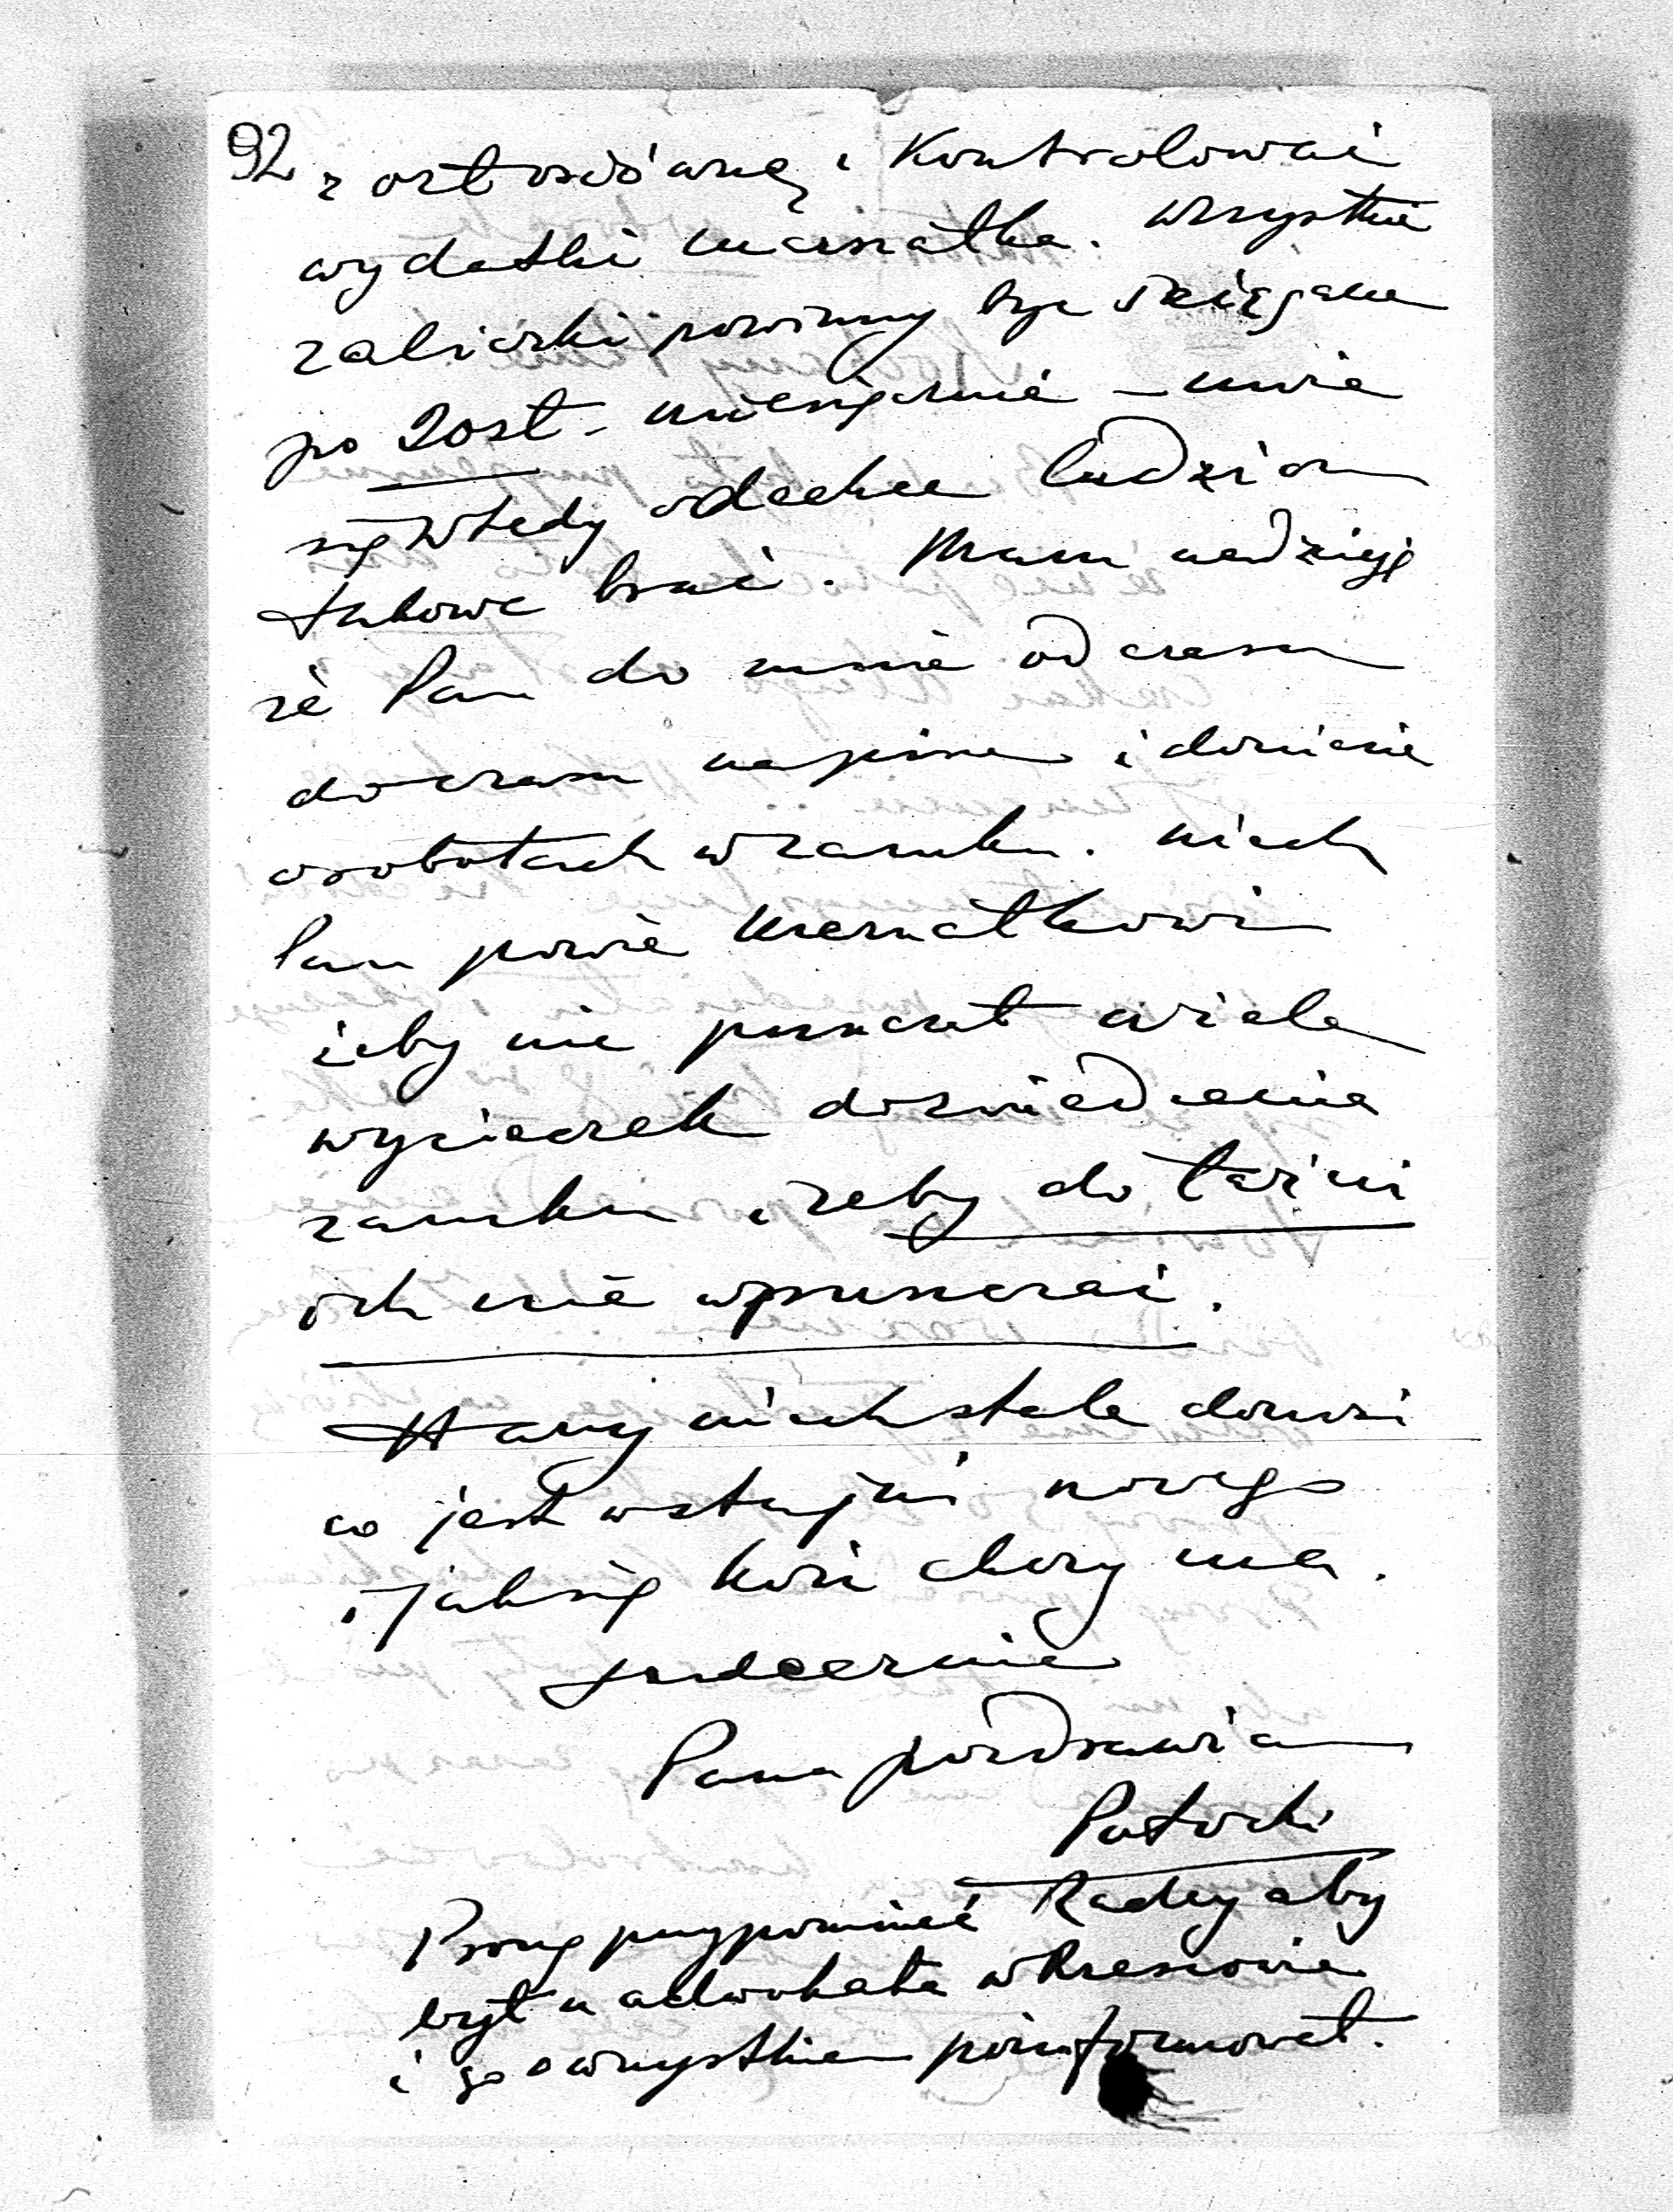 92
z ostrożną i Kontrolować
wydatki marszałka. Wszystkie
zaliczki powinny być ściągane
po 20 zł. miesięcznie – nie
się wtedy odechce ludziom
takowe brać. Mam nadzieję
że Pan do mnie od czasu
do czasu napisze i doniesie
o robotach w zamku. Niech
Pan powie marszałkowi
żeby nie puszczał wiele
wycieczek do zwiedzenia
zamku, żeby do łazień
ich nie wpuszczać.
niech stale donosi
co jest w stajni nowego
i jak się koń chory ma.
serdecznie
Pana pozdrawiam
Potocki
Proszę przypomnieć Radcy aby
był u adwokata w Rzeszowie
i go o wszystkiem poinformował.